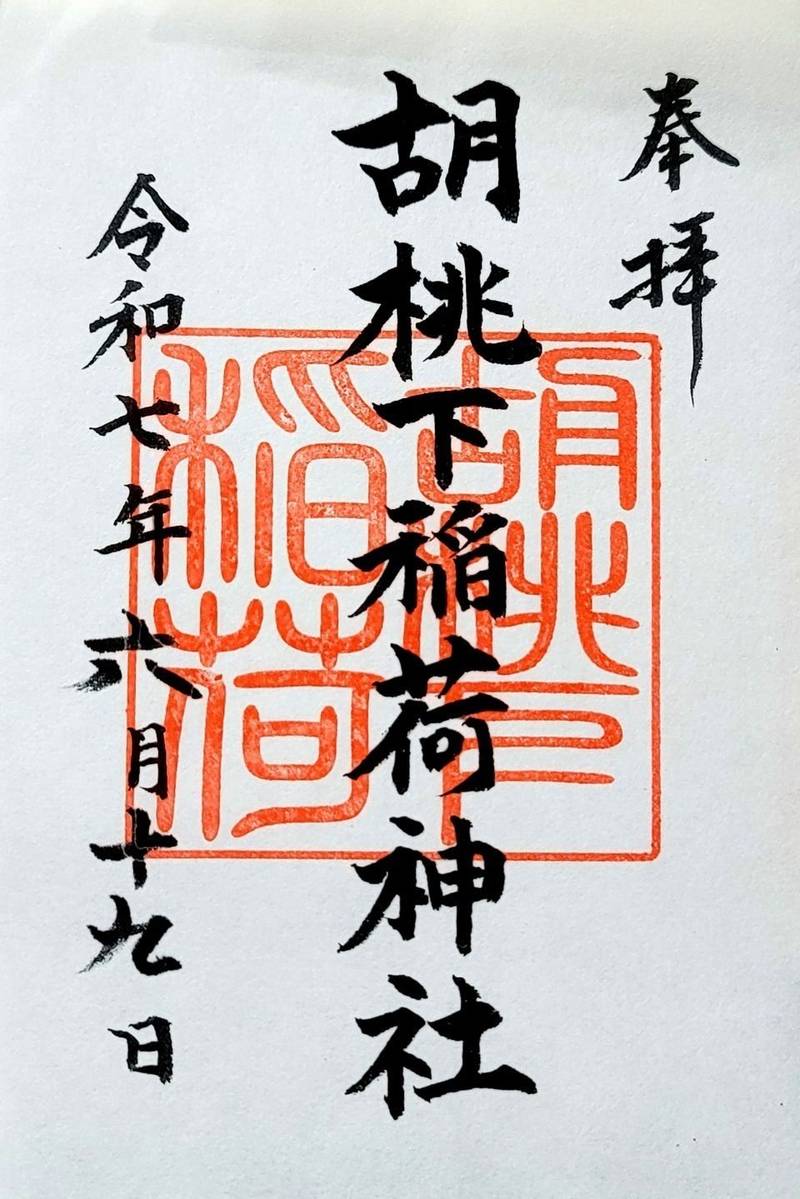 奉拝
胡桃下稲荷神社
胡桃下
稲荷
令和七年六月十九日